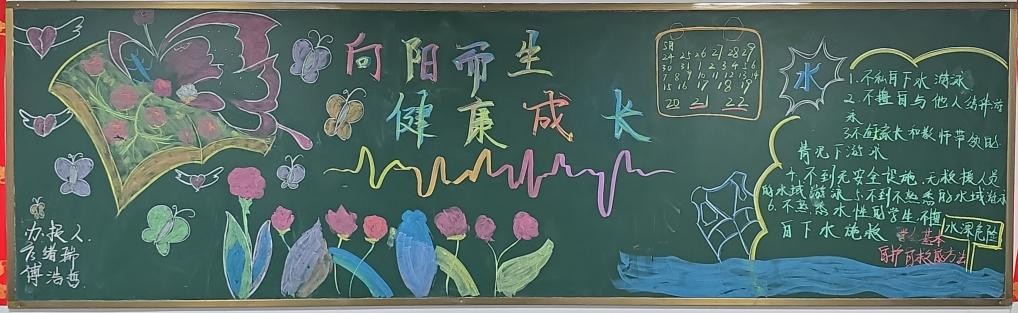 向阳而生
健康成长
5月
24 25 26 27 28 29
30 31 1 2 3 4 5 6
7 8 9 10 11 12 13 14
15 16 17 18 19
20 21 22
水
1.不私自下水游泳
2.不擅自与他人结伴游
泳
3.不在家长和教师带领的
情况下游泳
4.不到无安全设施、无救援人员
的水域游泳 5.不到不熟悉的水域游泳
6.不熟悉水性的学生不擅
自下水施救
基本
自护自救的方法
水深危险
办报人.
彦绪瑞
傅浩哲